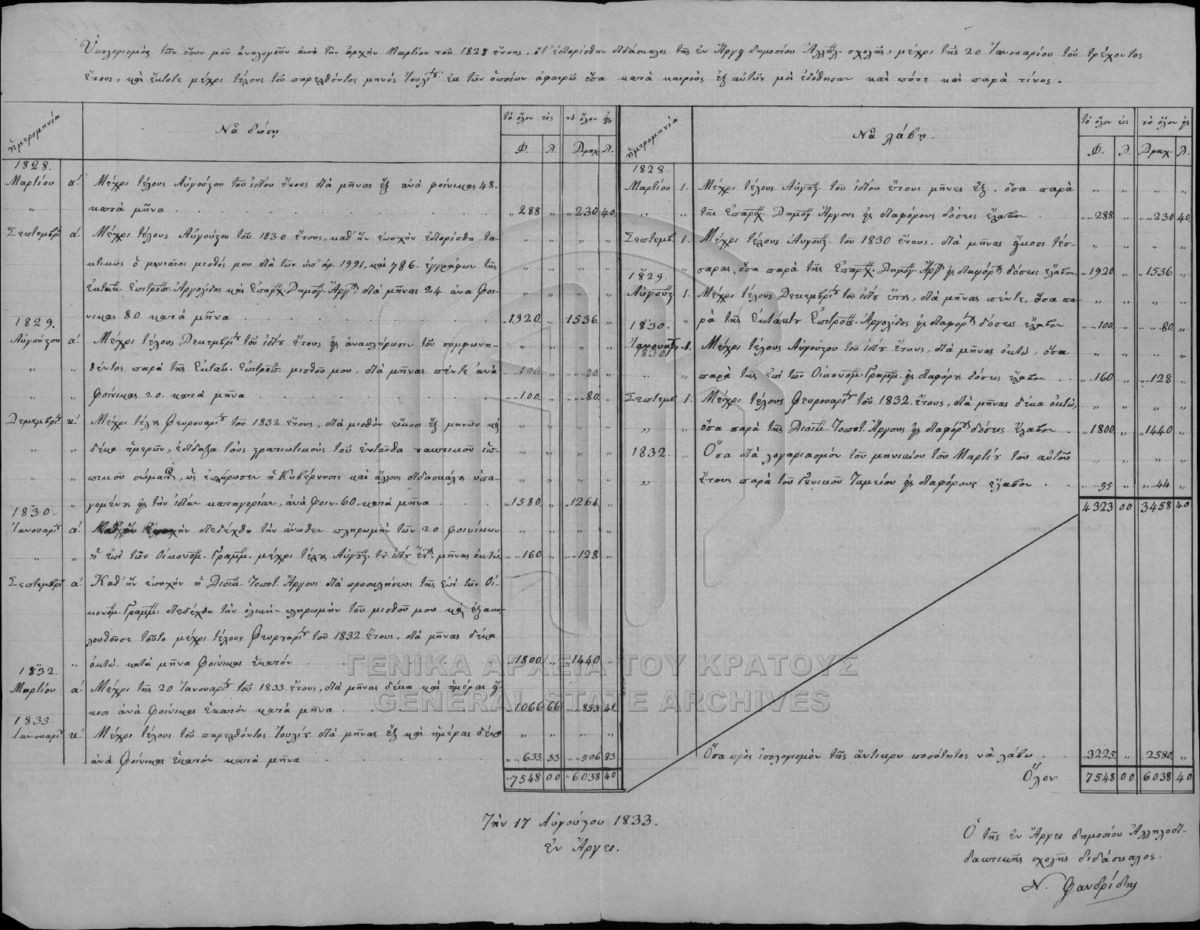 Ὑπολογισμὸς τῶν ὅσων μοὶ ἀναλογοῦν ἀπὸ τὴν ἀρχὴν Μαρτίου τοῦ 1828 ἔτους, ὅτ' ἐδιορίσθην διδάσκαλος τῆς ἐν Ἄργει δημοσίου Ἀλληλ. σχολῆς, μέχρι τῆς 20 Ἰανουαρίου τοῦ τρέχοντος
ἔτους, καὶ ἔκτοτε μέχρι τέλους τοῦ παρελθόντος μηνὸς Ἰουλίου ἐκ τῶν ὁποίων ἀφαιρῶ ὅσα κατὰ καιροὺς ἐξ αὐτῶν μοὶ ἐδόθησαν καὶ πότε καὶ παρὰ τίνος.
ἡμερομηνία
Νὰ δώσῃ
τὸ ὅλον εἰς
τὸ ὅλον εἰς
Φ. Λ. Δραχ. Λ.
1828.
Μαρτίου α΄. Μέχρι τέλους Αὐγούστου τοῦ ἰδίου ἔτους διὰ μῆνας ἓξ ἀνὰ φοίνικας 48.
κατὰ μῆνα 288 „ 230 40
Σεπτεμβρ. α΄. Μέχρι τέλους Αὐγούστου τοῦ 1830 ἔτους, καθ' ἣν ἐποχὴν ἐδιορίσθη τα-
κτικῶς ὁ μηνιαῖος μισθός μου διὰ τῶν ὑπ' ἀρ. 1991, καὶ 786. ἐγγράφων τῆς
Ἐκτάκ. Ἐπιτροπ. Ἀργολίδος καὶ Ἐπαρχ. Δημογ. Ἄργ. διὰ μῆνας 24 ἀνὰ φοί-
νικας 80 κατὰ μῆνα 1920 „ 1536 „
1829.
Αὐγούστου α΄. Μέχρι τέλους Δεκεμβρίου τοῦ ἰδίου ἔτους εἰς ἀναπλήρωσιν τοῦ συμφωνη-
θέντος παρὰ τῆς Ἐκτακ. Ἐπιτροπ. μισθοῦ μου, διὰ μῆνας πέντε ἀνὰ
φοίνικας 20 κατὰ μῆνα 100 „ 80 „
Δεκεμβρ. κ΄. Μέχρι τέλους Φεβρουαρίου τοῦ 1832 ἔτους, διὰ μισθὸν εἴκοσι ἓξ μηνῶν καὶ
δέκα ἡμερῶν, ἐδίδαξα τοὺς στρατιωτικοὺς τοῦ ἐνταῦθα τακτικοῦ ἱπ-
πικοῦ σώματος, ὡς ἐπλήρωσεν ἡ Κυβέρνησις καὶ ἄλλους διδασκάλους ὑπα-
γομένους εἰς τὴν ἰδίαν κατηγορίαν, ἀνὰ Φοιν. 60, κατὰ μῆνα 1580 „ 1264 „
1830.
Ἰανουαρ. α΄. διεδέχθη τὴν ἄνωθεν πληρωμὴν τῶν 20 φοινίκων
ἡ ἐπὶ τῶν Οἰκονομ. Γραμμ. μέχρι τέλους Αὐγούστ. τοῦ ἰδίου ἔτ. μῆνας ὀκτώ 160 „ 128 „
Σεπτεμβρ. α΄. Καθ' ἣν ἐποχὴν ἡ Διοικ. Τοποτ. Ἄργους διὰ προσκλήσεως τῆς ἐπὶ τῶν Οἰ-
κονομ. Γραμμ. διεδέχθη τὴν ὁλικὴν πληρωμὴν τοῦ μισθοῦ μου καὶ ἐξηκο-
λούθησε τοῦτο μέχρι τέλους Φεβρουαρίου τοῦ 1832 ἔτους, διὰ μῆνας δέκα
ὀκτὼ κατὰ μῆνα φοίνικας ἑκατόν 1800 „ 1440 „
1832.
Μαρτίου α΄. Μέχρι τῆς 20 Ἰανουαρίου τοῦ 1833 ἔτους, διὰ μῆνας δέκα καὶ ἡμέρας εἴ-
κοσι ἀνὰ φοίνικας ἑκατὸν κατὰ μῆνα 1066 66 853 41
1833
Ἰανουαρ. κ΄. Μέχρι τέλους τοῦ παρελθόντος Ἰουλίου διὰ μῆνας ἓξ καὶ ἡμέρας δέκα
ἀνὰ Φοίνικας ἑκατὸν κατὰ μῆνα 633 33 506 83
7548 00 6038 40
ἡμερομηνία
Νὰ λάβῃ.
τὸ ὅλον εἰς
τὸ ὅλον εἰς
Φ. Λ. Δραχ. Λ.
1828.
Μαρτίου 1. Μέχρι τέλους Αὐγούστ. τοῦ ἰδίου ἔτους μῆνες ἕξ, ὅσα παρὰ
τῆς Ἐπαρχ. Δημογ. Ἄργους εἰς διαφόρους δόσεις ἔλαβον 288 „ 230 40
Σεπτεμβ. 1. Μέχρι τέλους Αὐγούστ. τοῦ 1830 ἔτους, διὰ μῆνας εἴκοσι τέσ-
σαρας, ὅσα παρὰ τῆς Ἐπαρχ. Δημογ. Ἄργ. εἰς διαφόρ. δόσεις ἔλαβον 1920 „ 1536 „
1829.
Αὐγούστ. 1. Μέχρι τέλους Δεκεμβρίου τοῦ ἰδίου ἔτους, διὰ μῆνας πέντε, ὅσα πα-
ρὰ τῆς Ἐκτάκτου Ἐπιτροπ. Ἀργολίδος εἰς διαφόρ. δόσεις ἔλαβον 100 „ 80 „
1830.
Ἰανουαρ. 1. Μέχρι τέλους Αὐγούστου τοῦ ἰδίου ἔτους, διὰ μῆνας ὀκτώ, ὅσα
παρὰ τῆς ἐπὶ τῶν Οἰκονομ. Γραμμ. εἰς διαφόρους δόσεις ἔλαβον 160 „ 128 „
1830.
Σεπτεμβ. 1. Μέχρι τέλους Φεβρουαρίου τοῦ 1832. ἔτους, διὰ μῆνας δέκα ὀκτώ,
ὅσα παρὰ τῆς Διοικ. Τοποτ. Ἄργους εἰς διαφόρ. δόσεις ἔλαβον 1800 „ 1440 „
1832. Ὅσα διὰ λογαριασμὸν τοῦ μηνιαίου τοῦ Μαρτίου τοῦ αὐτοῦ
ἔτους παρὰ τοῦ Γενικοῦ Ταμείου εἰς διαφόρους ἔλαβον 55 „ 44 „
4323 00 3458 40
Ὅσα πρὸς ἰσολογισμὸν τῆς ἄντικρυ ποσότητος νὰ λάβω 3225 „ 2580 „
Ὅλον 7548 00 6038 40
Τὴν 17 Αὐγούστου 1833.
ἐν Ἄργει.
Ὁ τῆς ἐν Ἄργει δημοσίου Ἀλληλοδι-
δακτικῆς σχολῆς διδάσκαλος.
Ν.
ΓΕΝΙΚΑ ΑΡΧΕΙΑ ΤΟΥ ΚΡΑΤΟΥΣ
GENERAL STATE ARCHIVES